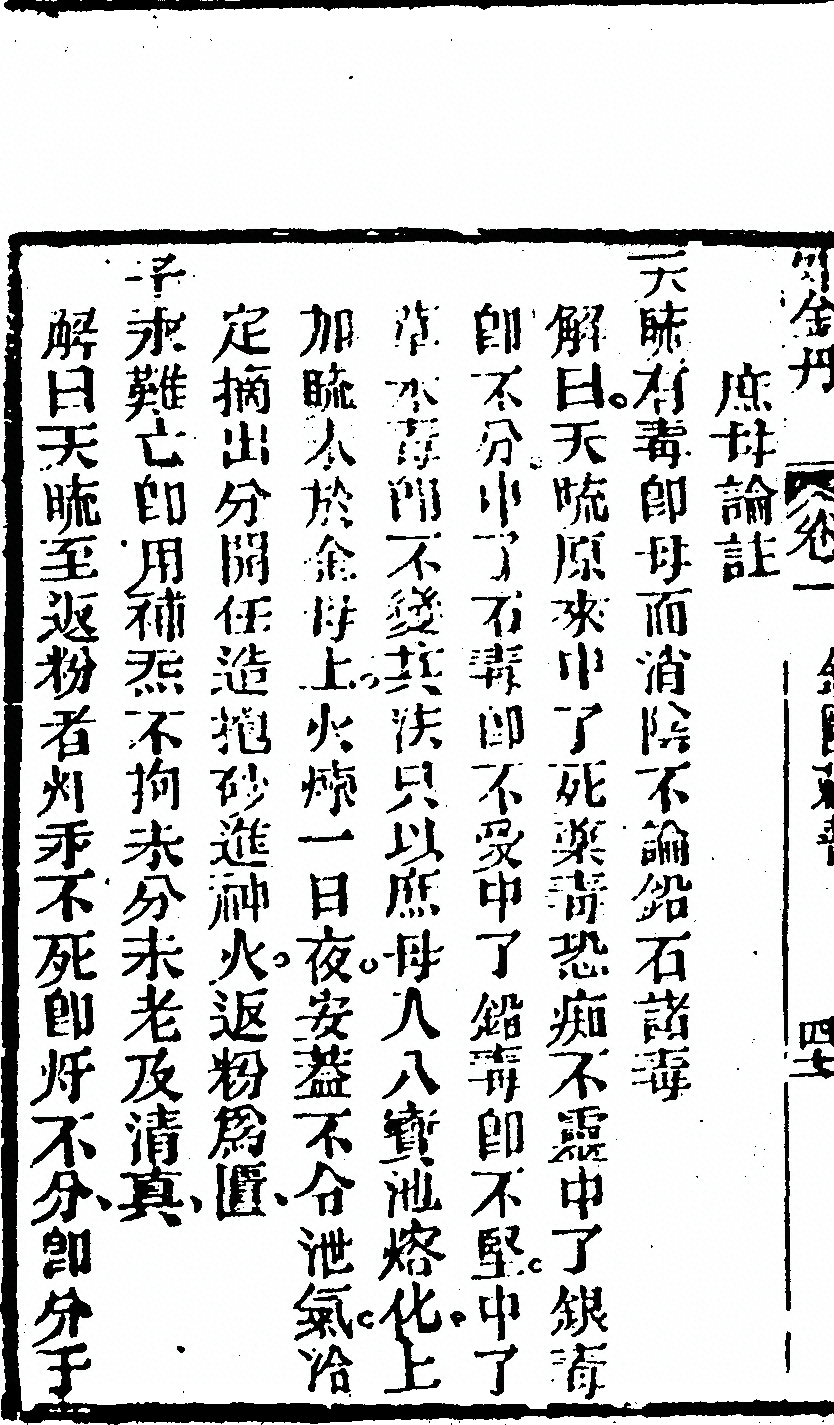 金丹 卷一 四七
庶母論註
天𥑮有毒卽母而消陰不論鉛石諸毒
解曰天𥑮原來中了死藥毒恐痴不靈中了銀毒
卽不分中了石毒卽不受中了鉛毒卽不堅中了
草木毒卽不變其法只以庶母入八寶池熔化上
加𥑮入於金母上火煉一日夜安蓋不合泄氣冷
定摘出分開任造抱砂進神火返粉爲匱
子永難亡卽用補炁不拘未分未老及清真
解曰天𥑮至返粉者㸃汞不死卽㸃不分卽分子